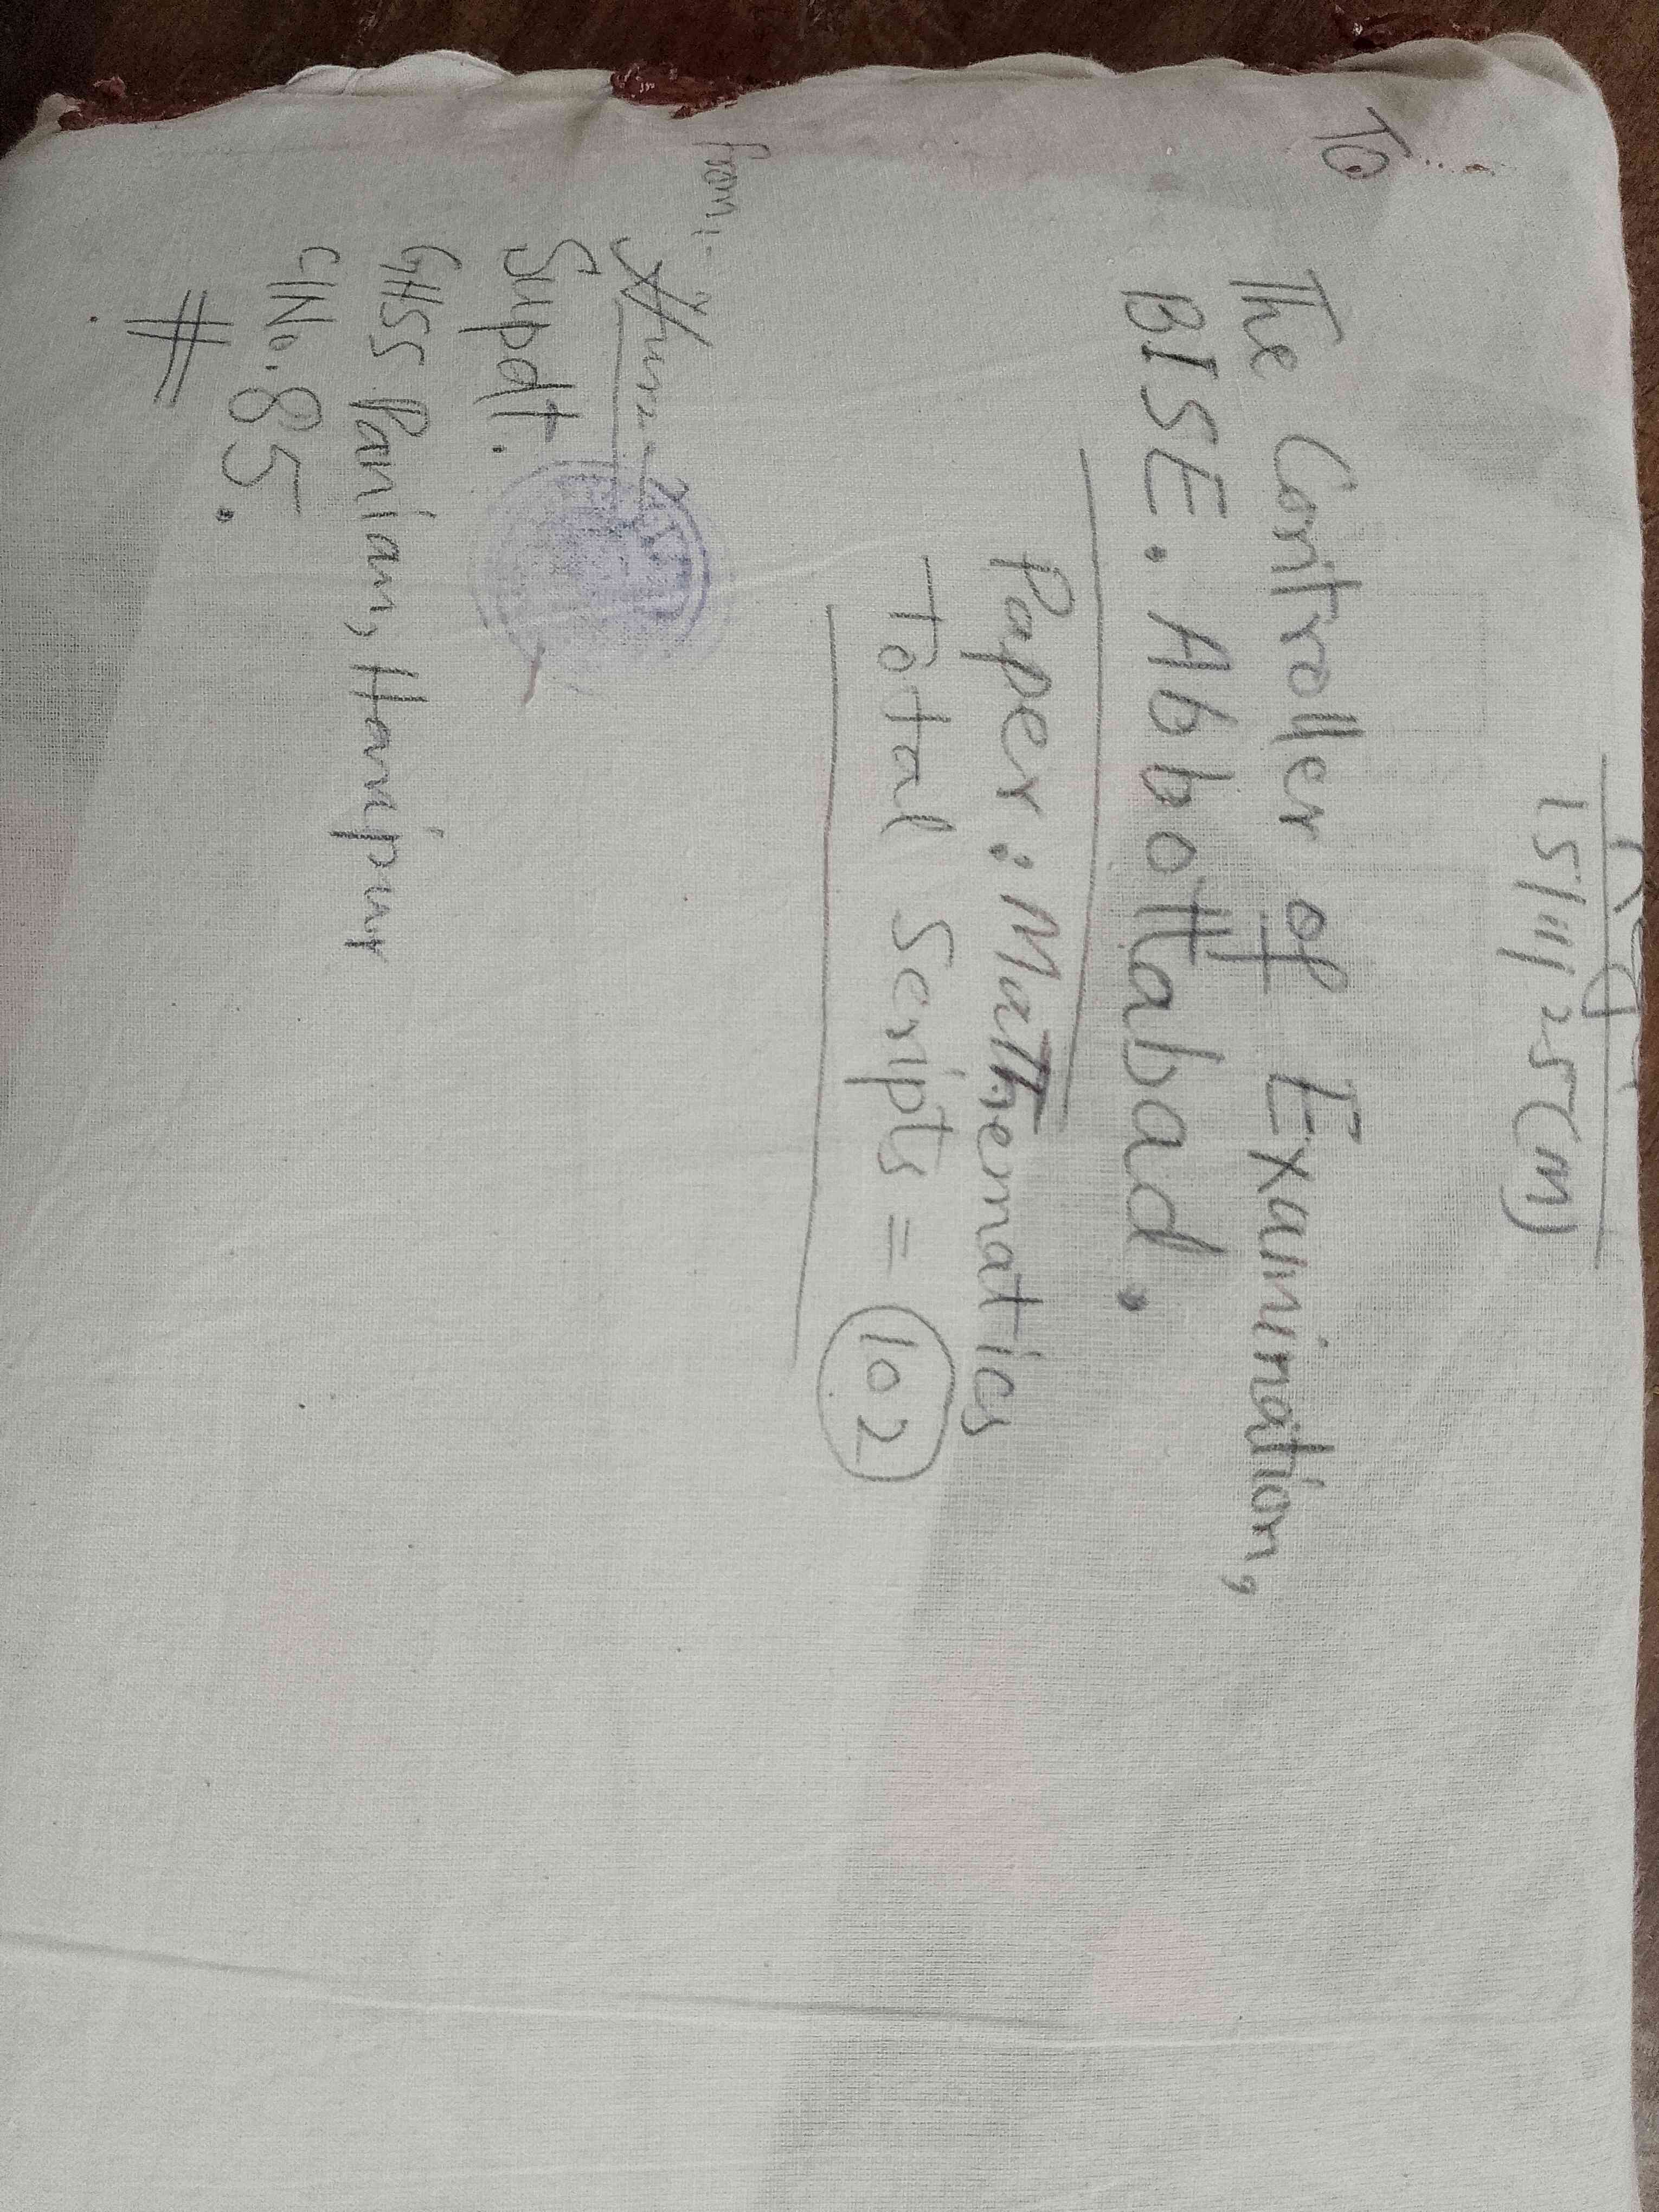 15/4/25(M)
To
The Controller of Examination,
BISE. Abbottabad.
Paper: Mathematics
Total Scripts = 102
From:-
Supdt.
GHSS Panian, Haripur
C/No. 85.